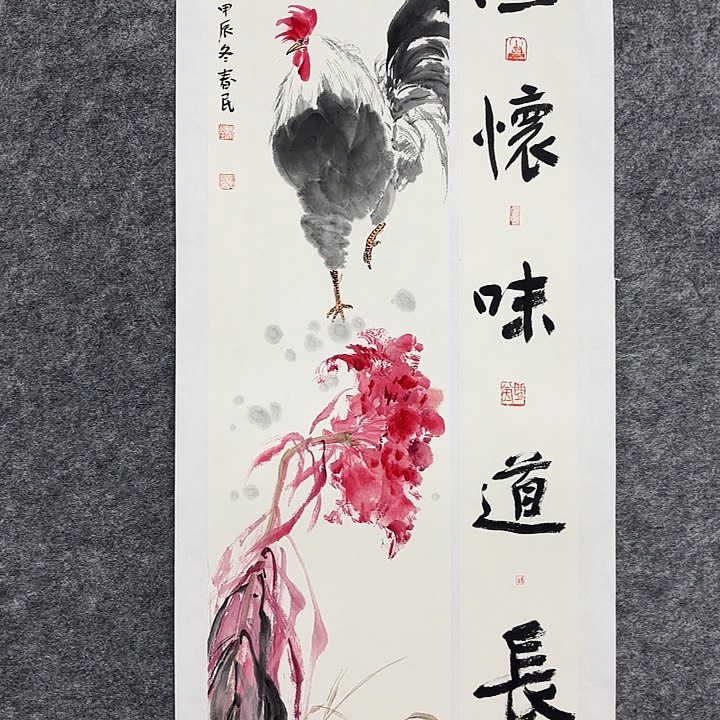 懷味道長
甲辰冬春民